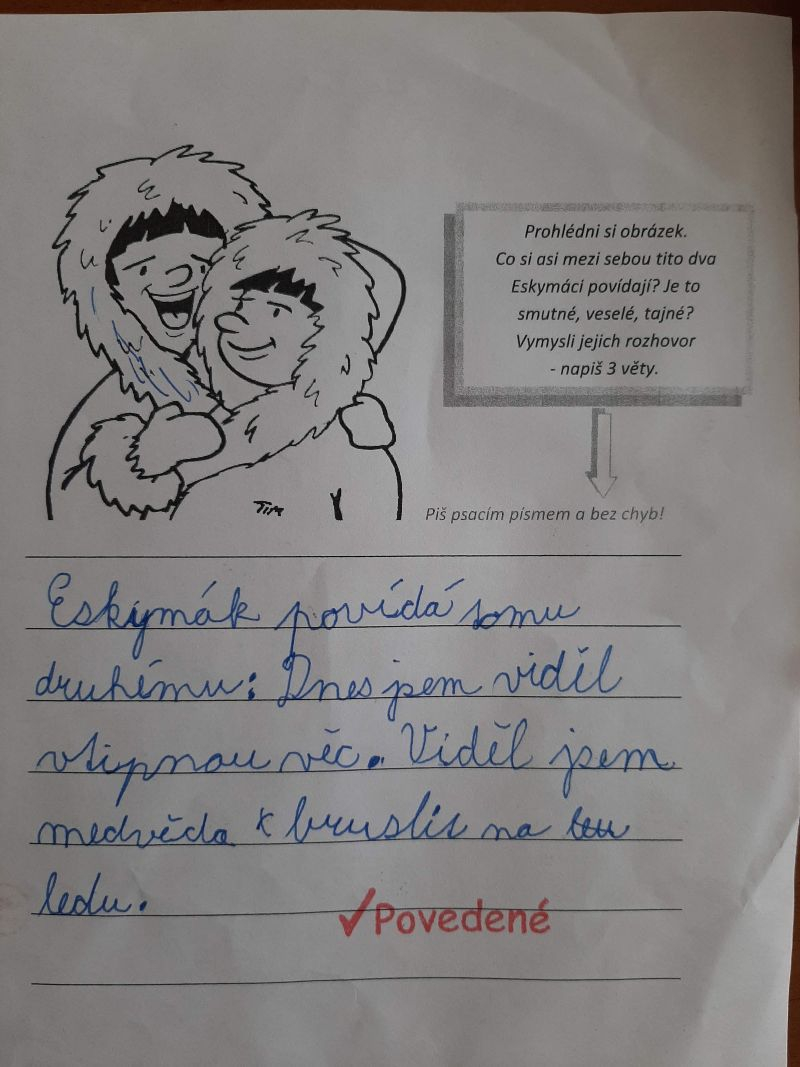 Prohlédni si obrázek.
Co si asi mezi sebou tito dva
Eskymáci povídají? Je to
smutné, veselé, tajné?
Vymysli jejich rozhovor
- napiš 3 věty.
TIM
Piš psacím písmem a bez chyb!
Eskymák povídá tomu
druhému: Dnes jsem viděl
vtipnou věc. Viděl jsem
medvěda bruslit na
ledu.
✓Povedené